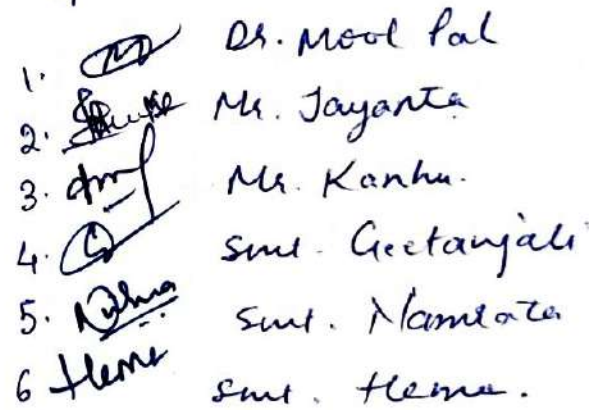 1. Dr. Mool Pal
2. Mr. Jayanta
3. Mr. Kanhu.
4. Smt. Geetanjali
5. Smt. Namrata
6 Hema Smt. Hema.